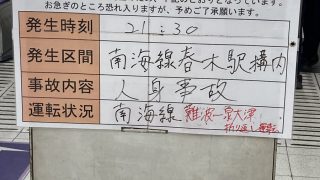 お急ぎのところ恐れ入りますが、予めご了承願います。
発生時刻 21:30
発生区間 南海線春木駅構内
事故内容 人身事故
運転状況 南海線 難波ー泉大津
折り返し運転